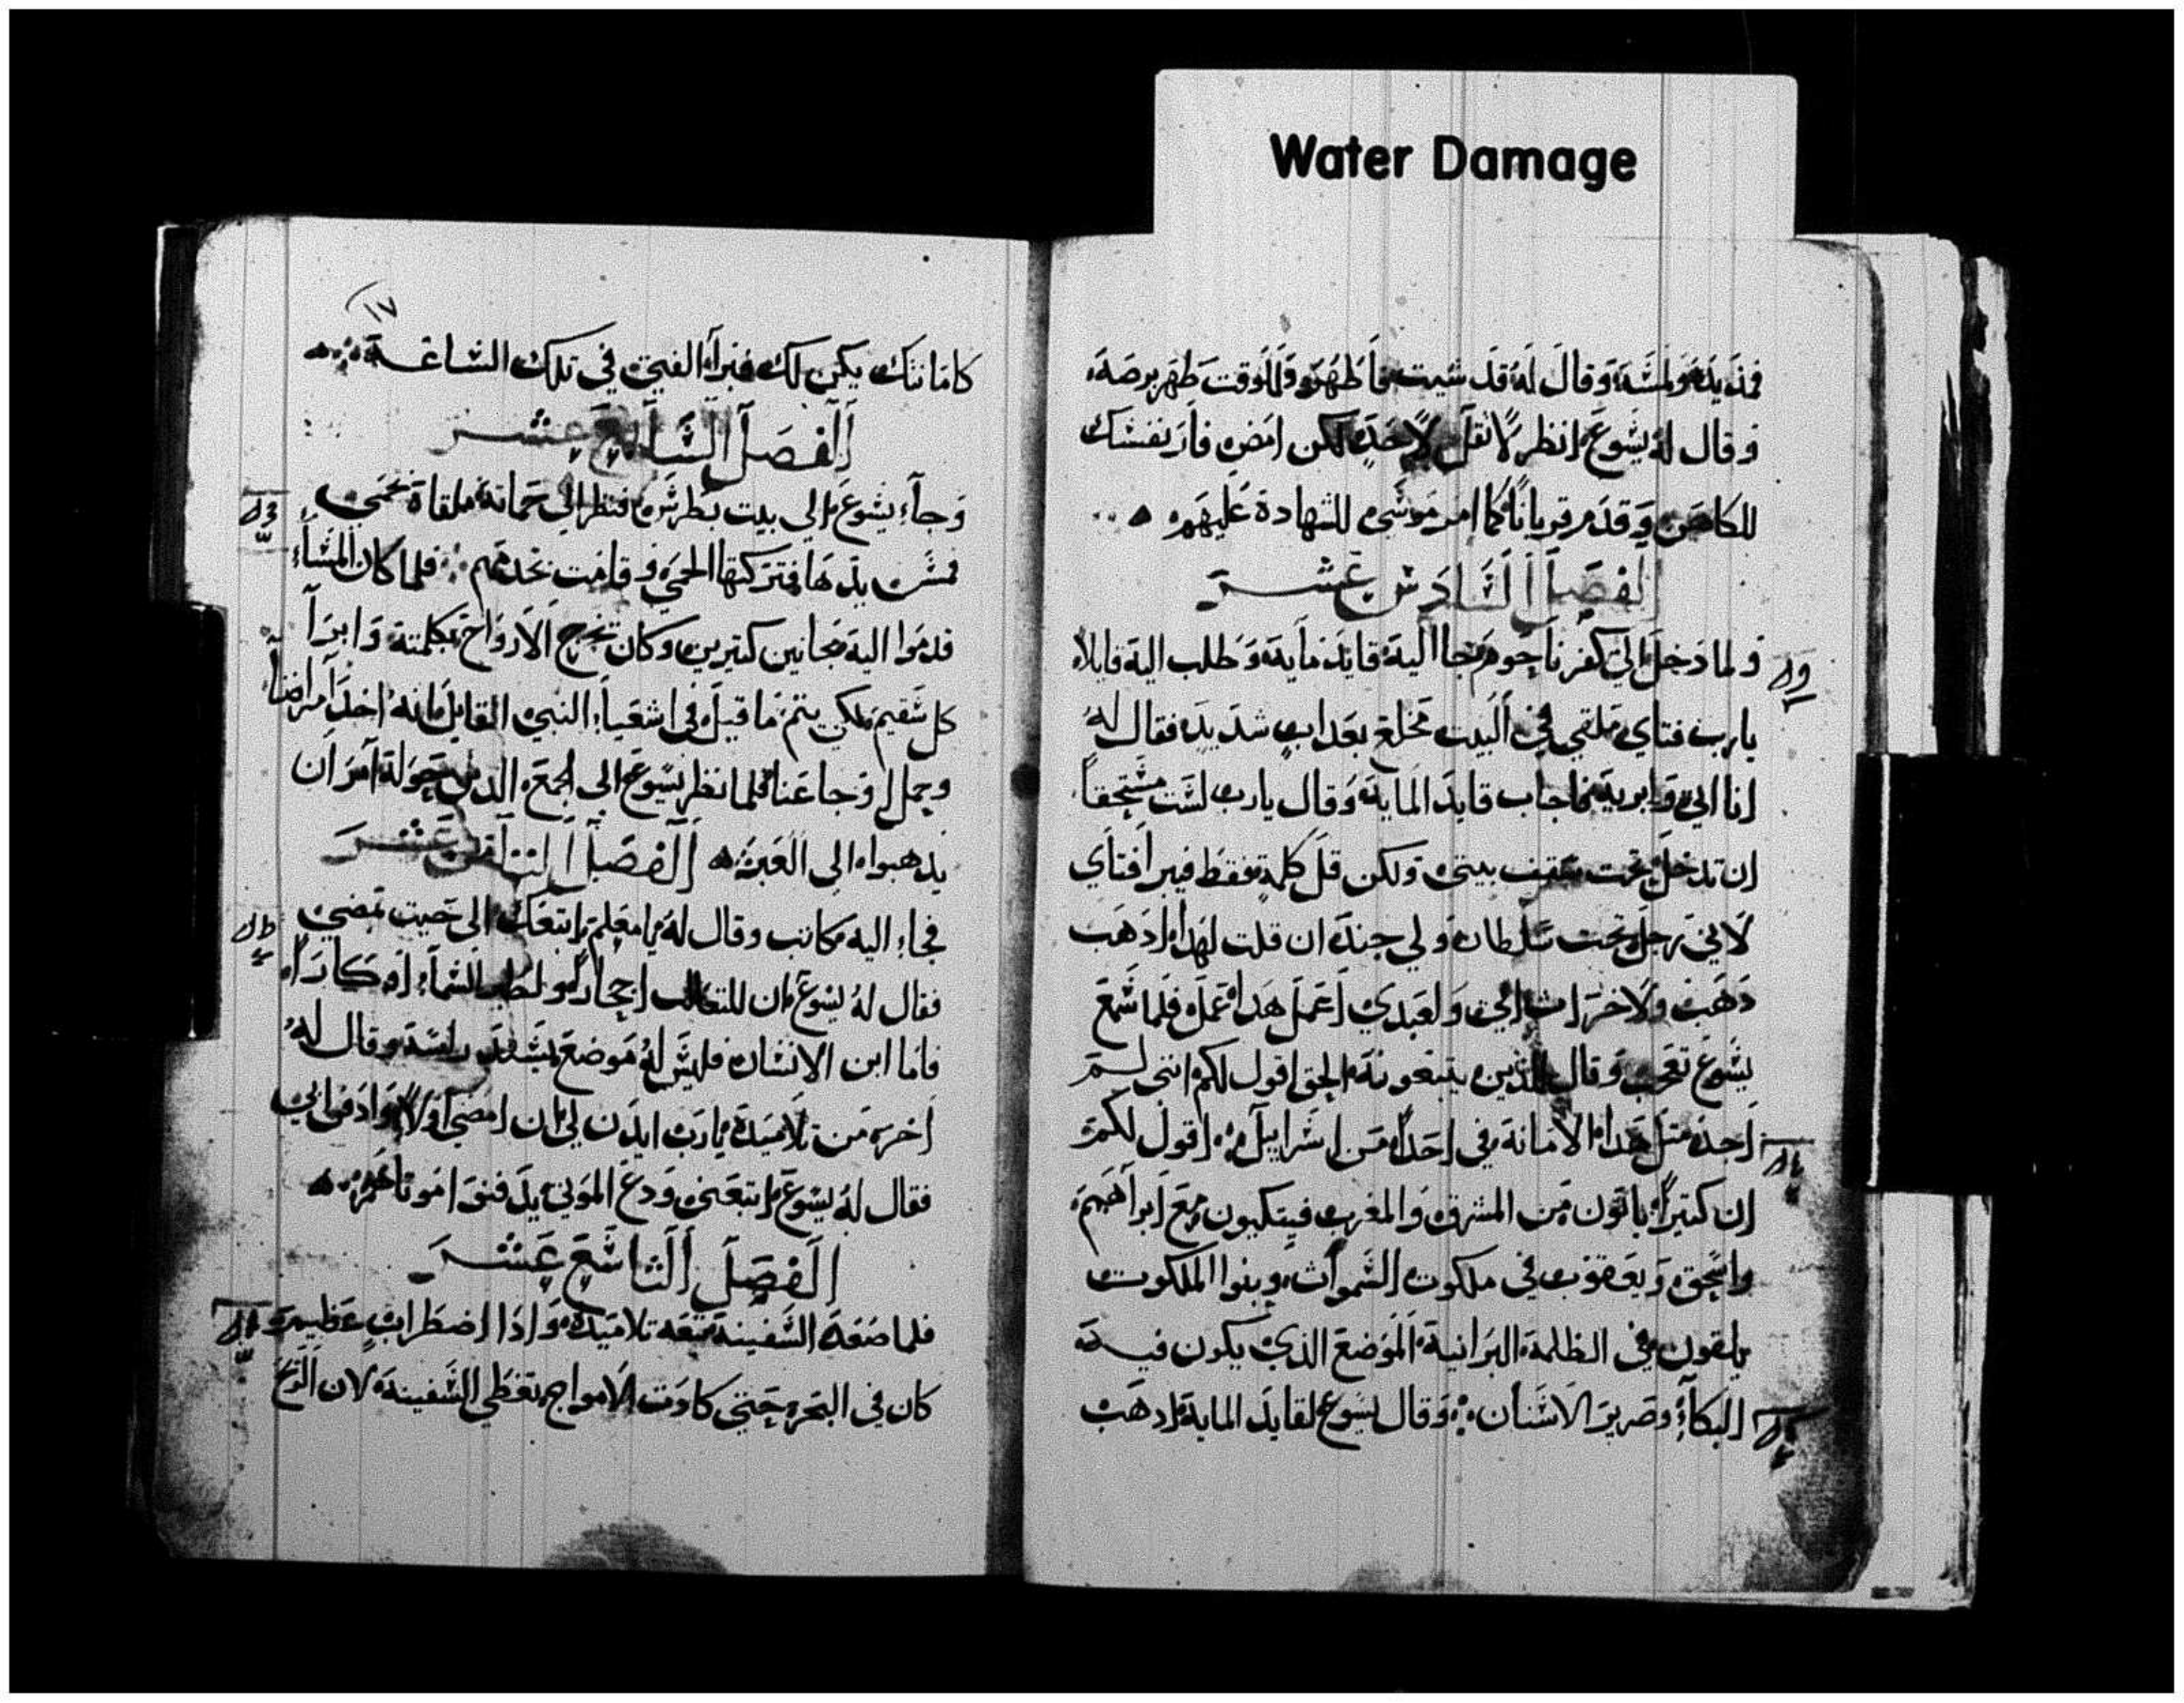 Water Damage
فمد يده ولمسه وقال له قد شيت فاطهر وللوقت طهر برصه
وقال له يشوع انظر لا تقل لاحد لكن امض فار نفسك
للكاهن وقدم قربانا كما امر موسى للشهادة عليهم
الفصل السادس عشر
ولما دخل الى كفرناحوم جا اليه قايد مايه وطلب اليه قايلا
يارب فتاي ملقي في البيت مخلع بعداب شديد فقال له
انا اتي وابريه فاجاب قايد المايه وقال يارب لست مستحقا
ان تدخل تحت سقف بيتي ولكن قل كلمة فقط فيبرا فتاي
لاني رجل تحت سلطان ولي جند ان قلت لهدا ادهب
دهب ولاخر ات اتي ولعبدي اعمل هدا عمل فلما سمع
يشوع تعجب وقال للذين يتبعونه الحق اقول لكم انني لم
اجد متل هدا الامانة في احدا من اسراييل اقول لكم
ان كتيرا ياتون من المشرق والمغرب فيتكيون مع ابراهيم
واسحق ويعقوب في ملكوت السموات وبنوا الملكوت
يلقون في الظلمة البرانية الموضع الذي يكون فيه
البكاء وصرير الاسنان وقال يسوع لقايد الماية ادهب
١٧
كامانتك يكن لك فبرا الفتى في تلك الساعة
الفصل السابع عشر
وجاء يشوع الى بيت بطرس فنظر الى حماته ملقاة تحمى
فمس يدها فتركتها الحمى وقامت تخدمهم فلما كان المساء
قدموا اليه مجانين كتيرين وكان يخرج الارواح بكلمته وابرا
كل سقيم لكي يتم ما قيل في اشعياء النبي القايل انه اخد امراضنا
وحمل اوجاعنا فلما نظر يسوع الى الجمع الدين حوله امر ان
يدهبوا الى العبر الفصل التامن عشر
فجاء اليه كاتب وقال له يا معلم اتبعك الى حيت تمضي
فقال له يسوع ان للتعالب اجحار ولطير السماء اوكارا
فاما ابن الانسان فليس له موضع يسند راسه وقال له
اخر من تلاميده يارب ايدن لي ان امضي اولا وادفن ابي
فقال له يسوع اتبعني ودع الموتى يدفنوا موتاهم
الفصل التاسع عشر
فلما صعد السفينة تبعه تلاميده واذا اضطراب عظيم
كان في البحر حتى كادت الامواج تغطي السفينة لان الريح